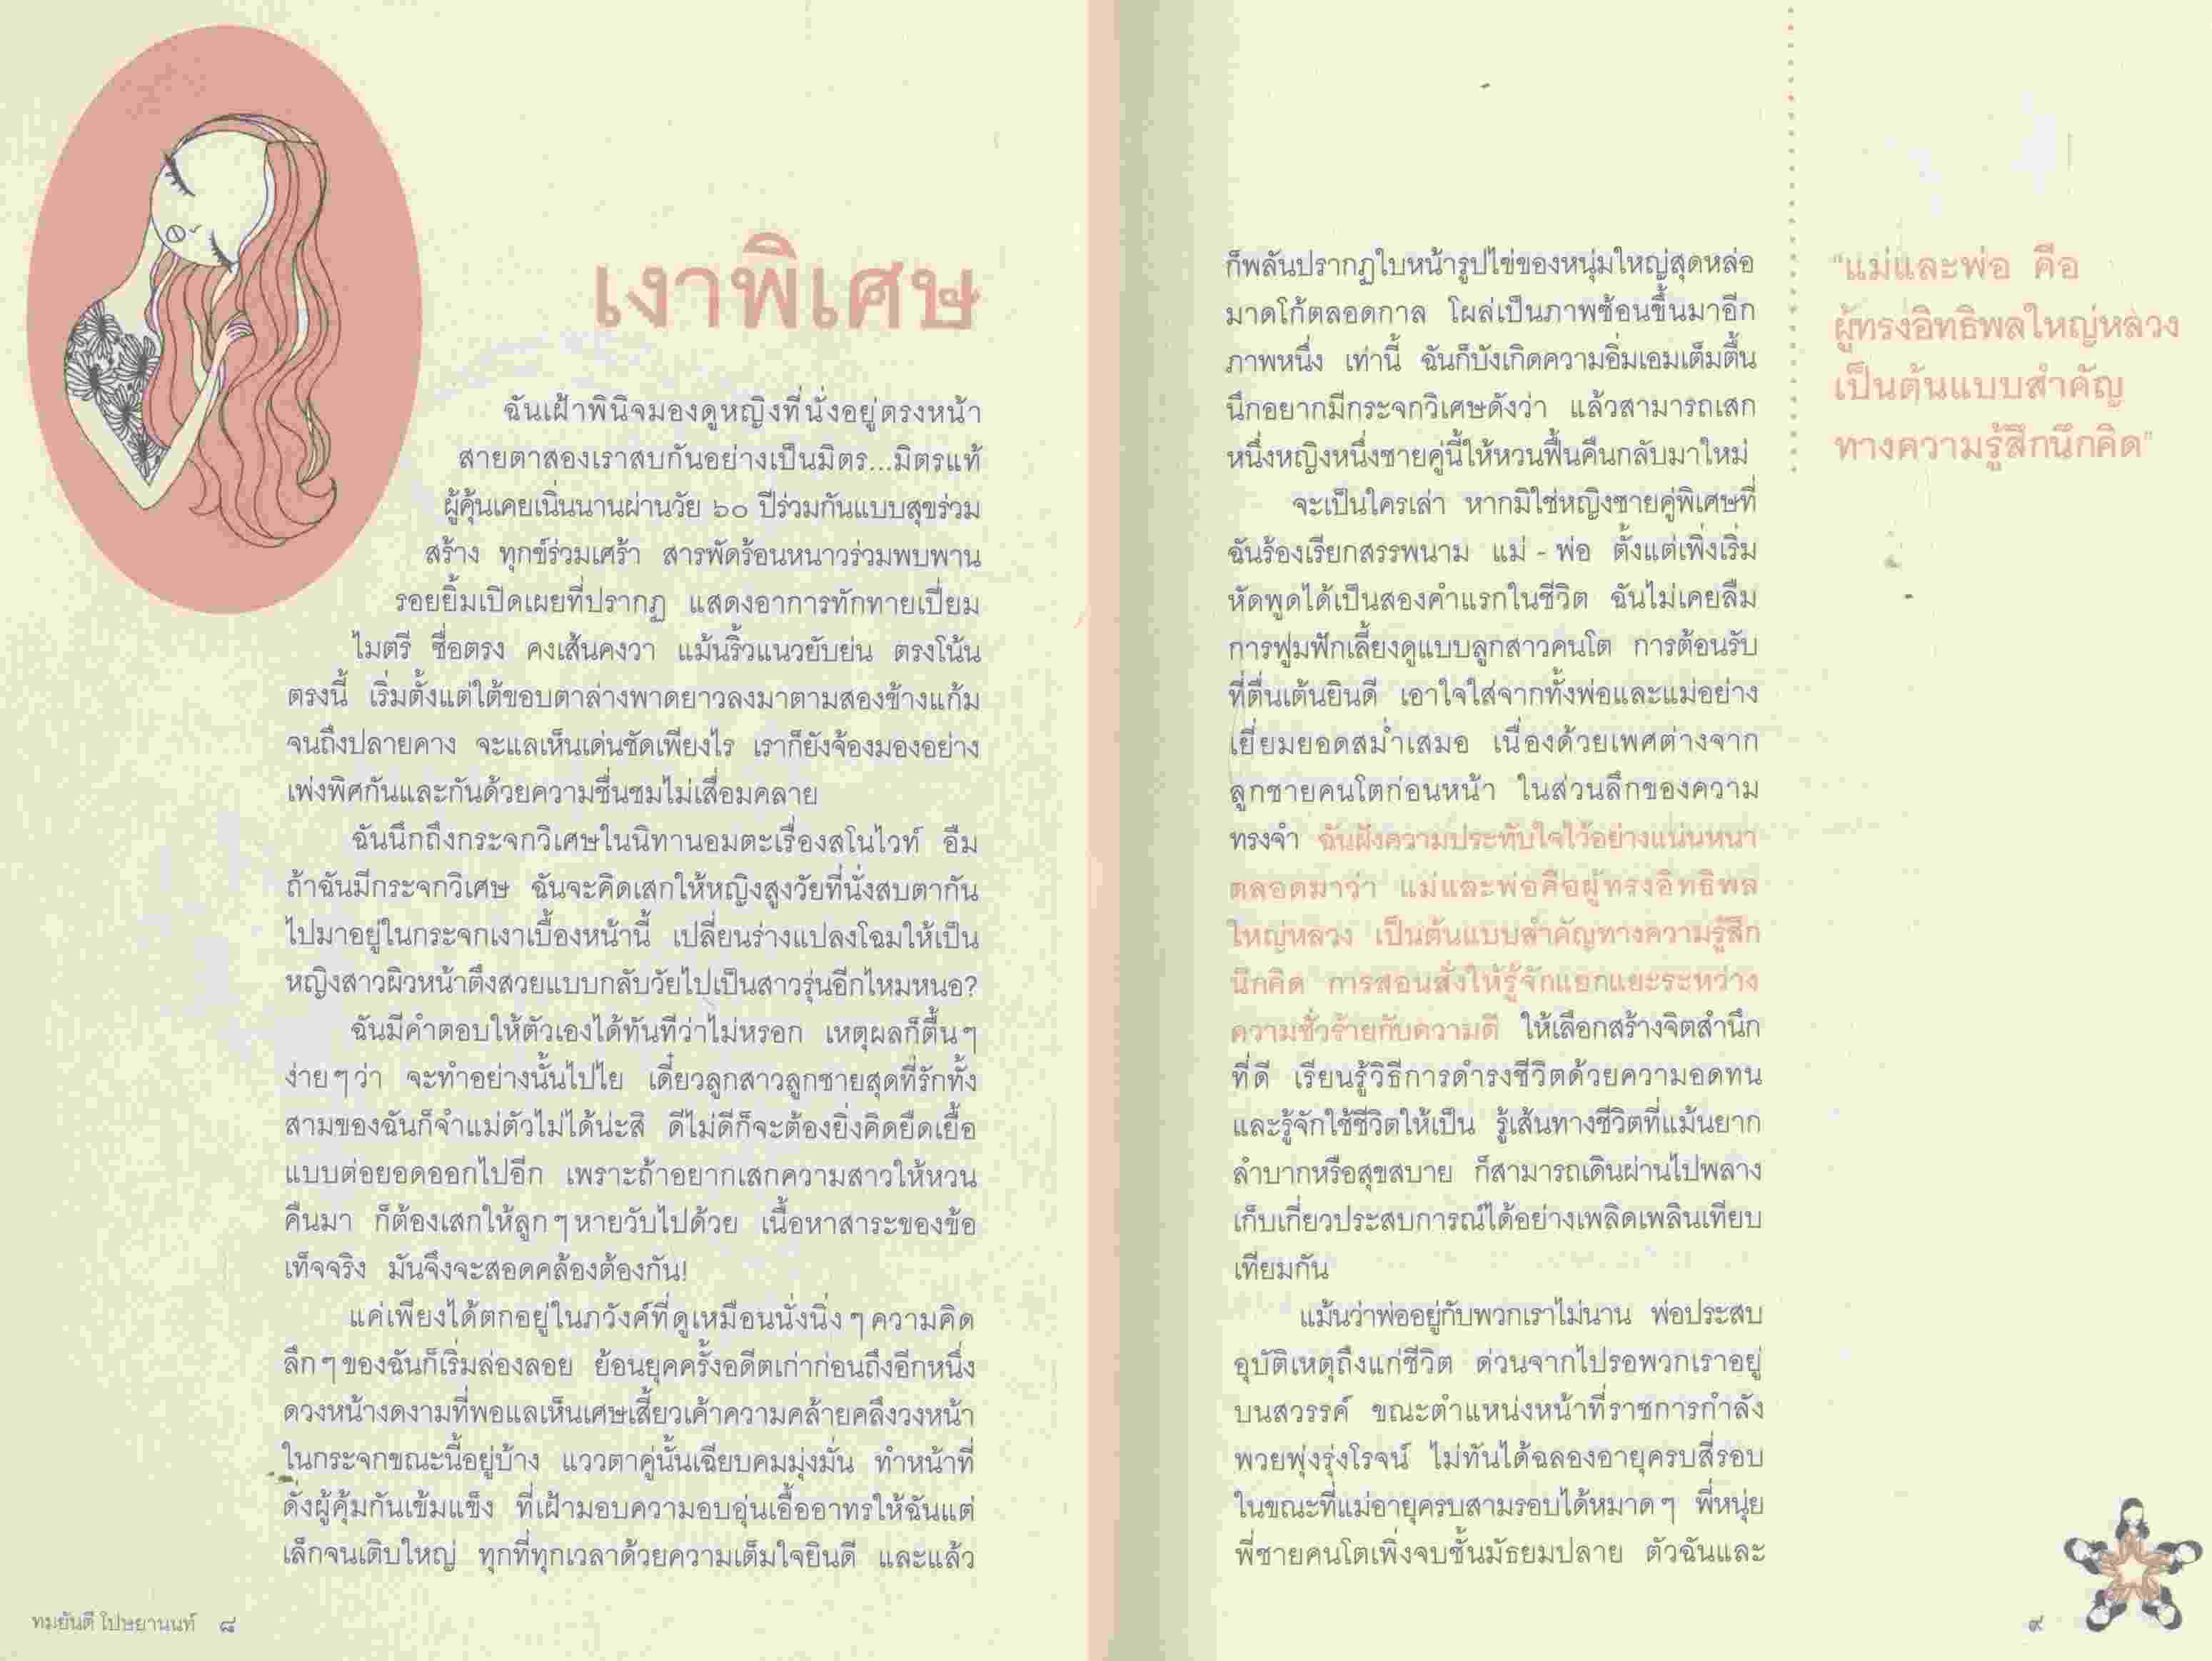 เงาพิเศษ
ฉันเฝ้าพินิจมองดูหญิงที่นั่งอยู่ตรงหน้า
สายตาสองเราสบกันอย่างเป็นมิตร...มิตรแท้
ผู้คุ้นเคยเนิ่นนานผ่านวัย ๖๐ ปีร่วมกันแบบสุขร่วม
สร้าง ทุกข์ร่วมเศร้า สารพัดร้อนหนาวร่วมพบพาน
รอยยิ้มเปิดเผยที่ปรากฏ แสดงอาการทักทายเปี่ยม
ไมตรี ซื่อตรง คงเส้นคงวา แม้นริ้วแนวยับย่น ตรงโน้น
ตรงนี้ เริ่มตั้งแต่ใต้ขอบตาล่างพาดยาวลงมาตามสองข้างแก้ม
จนถึงปลายคาง จะแลเห็นเด่นชัดเพียงไร เราก็ยังจ้องมองอย่าง
เพ่งพิศกันและกันด้วยความชื่นชมไม่เสื่อมคลาย
ฉันนึกถึงกระจกวิเศษในนิทานอมตะเรื่องสโนไวท์ อืม
ถ้าฉันมีกระจกวิเศษ ฉันจะคิดเสกให้หญิงสูงวัยที่นั่งสบตากัน
ไปมาอยู่ในกระจกเงาเบื้องหน้านี้ เปลี่ยนร่างแปลงโฉมให้เป็น
หญิงสาวผิวหน้าตึงสวยแบบกลับวัยไปเป็นสาวรุ่นอีกไหมหนอ?
ฉันมีคำตอบให้ตัวเองได้ทันทีว่าไม่หรอก เหตุผลก็ตื้นๆ
ง่ายๆว่า จะทำอย่างนั้นไปไย เดี๋ยวลูกสาวลูกชายสุดที่รักทั้ง
สามของฉันก็จำแม่ตัวไม่ได้น่ะสิ ดีไม่ดีก็จะต้องยิ่งคิดยืดเยื้อ
แบบต่อยอดออกไปอีก เพราะถ้าอยากเสกความสาวให้หวน
คืนมา ก็ต้องเสกให้ลูกๆหายวับไปด้วย เนื้อหาสาระของข้อ
เท็จจริง มันจึงจะสอดคล้องต้องกัน!
แค่เพียงได้ตกอยู่ในภวังค์ที่ดูเหมือนนั่งนิ่งๆความคิด
ลึกๆของฉันก็เริ่มล่องลอย ย้อนยุคครั้งอดีตเก่าก่อนถึงอีกหนึ่ง
ดวงหน้างดงามที่พอแลเห็นเศษเสี้ยวเค้าความคล้ายคลึงวงหน้า
ในกระจกขณะนี้อยู่บ้าง แววตาคู่นั้นเฉียบคมมุ่งมั่น ทำหน้าที่
ดั่งผู้คุ้มกันเข้มแข็ง ที่เฝ้ามอบความอบอุ่นเอื้ออาทรให้ฉันแต่
เล็กจนเติบใหญ่ ทุกที่ทุกเวลาด้วยความเต็มใจยินดี และแล้ว
ทมยันตี โปษยานนท์ ๘
ก็พลันปรากฏใบหน้ารูปไข่ของหนุ่มใหญ่สุดหล่อ
มาดโก้ตลอดกาล โผล่เป็นภาพซ้อนขึ้นมาอีก
ภาพหนึ่ง เท่านี้ ฉันก็บังเกิดความอิ่มเอมเต็มตื้น
นึกอยากมีกระจกวิเศษดังว่า แล้วสามารถเสก
หนึ่งหญิงหนึ่งชายคู่นี้ให้หวนฟื้นคืนกลับมาใหม่
จะเป็นใครเล่า หากมิใช่หญิงชายคู่พิเศษที่
ฉันร้องเรียกสรรพนาม แม่ - พ่อ ตั้งแต่เพิ่งเริ่ม
หัดพูดได้เป็นสองคำแรกในชีวิต ฉันไม่เคยลืม
การฟูมฟักเลี้ยงดูแบบลูกสาวคนโต การต้อนรับ
ที่ตื่นเต้นยินดี เอาใจใส่จากทั้งพ่อและแม่อย่าง
เยี่ยมยอดสม่ำเสมอ เนื่องด้วยเพศต่างจาก
ลูกชายคนโตก่อนหน้า ในส่วนลึกของความ
ทรงจำ ฉันฝังความประทับใจไว้อย่างแน่นหนา
ตลอดมาว่า แม่และพ่อคือผู้ทรงอิทธิพล
ใหญ่หลวง เป็นต้นแบบสำคัญทางความรู้สึก
นึกคิด การสอนสั่งให้รู้จักแยกแยะระหว่าง
ความชั่วร้ายกับความดี ให้เลือกสร้างจิตสำนึก
ที่ดี เรียนรู้วิธีการดำรงชีวิตด้วยความอดทน
และรู้จักใช้ชีวิตให้เป็น รู้เส้นทางชีวิตที่แม้นยาก
ลำบากหรือสุขสบาย ก็สามารถเดินผ่านไปพลาง
เก็บเกี่ยวประสบการณ์ได้อย่างเพลิดเพลินเทียบ
เทียมกัน
แม้นว่าพ่ออยู่กับพวกเราไม่นาน พ่อประสบ
อุบัติเหตุถึงแก่ชีวิต ด่วนจากไปรอพวกเราอยู่
บนสวรรค์ ขณะตำแหน่งหน้าที่ราชการกำลัง
พวยพุ่งรุ่งโรจน์ ไม่ทันได้ฉลองอายุครบสี่รอบ
ในขณะที่แม่อายุครบสามรอบได้หมาดๆ พี่หนุ่ย
พี่ชายคนโตเพิ่งจบชั้นมัธยมปลาย ตัวฉันและ
"แม่และพ่อ คือ
ผู้ทรงอิทธิพลใหญ่หลวง
เป็นต้นแบบสำคัญ
ทางความรู้สึกนึกคิด"
๙